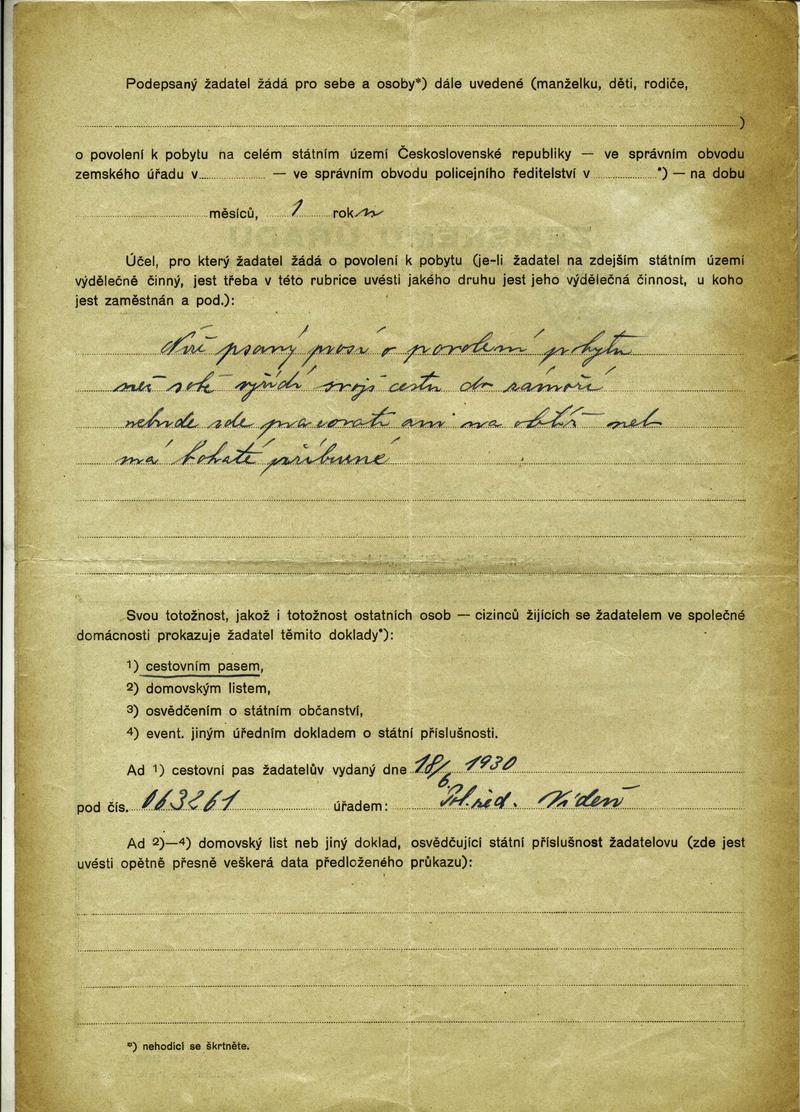 Podepsaný žadatel žádá pro sebe a osoby*) dále uvedené (manželku, děti, rodiče,
)
o povolení k pobytu na celém státním území Československé republiky — ve správním obvodu
zemského úřadu v — ve správním obvodu policejního ředitelství v *) — na dobu
měsíců, 1 rok
Účel, pro který žadatel žádá o povolení k pobytu (je-li žadatel na zdejším státním území
výdělečně činný, jest třeba v této rubrice uvésti jakého druhu jest jeho výdělečná činnost, u koho
jest zaměstnán a pod.):
psaný prosí o povolení pobytu
než sobě vyřídí svojí cestu do zámoří
nebude zde pracovati ani na obtíž neb
má bohaté příbuzné
Svou totožnost, jakož i totožnost ostatních osob — cizinců žijících se žadatelem ve společné
domácnosti prokazuje žadatel těmito doklady*):
1) cestovním pasem,
2) domovským listem,
3) osvědčením o státním občanství,
4) event. jiným úředním dokladem o státní příslušnosti.
Ad 1) cestovní pas žadatelův vydaný dne 18/6 1930
pod čís. 063261 úřadem: Pol. řed. Vídeň
Ad 2)—4) domovský list neb jiný doklad, osvědčující státní příslušnost žadatelovu (zde jest
uvésti opětně přesně veškerá data předloženého průkazu):
*) nehodící se škrtněte.